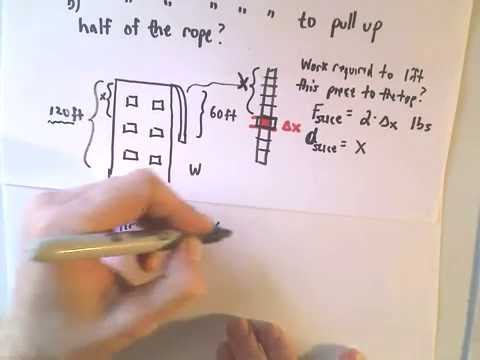 b) " " " " " to pull up
half of the rope?
Work required to lift
this piece to the top?
F slice = 2·Δx lbs
d slice = x
x
120ft
x
60ft
Δx
W